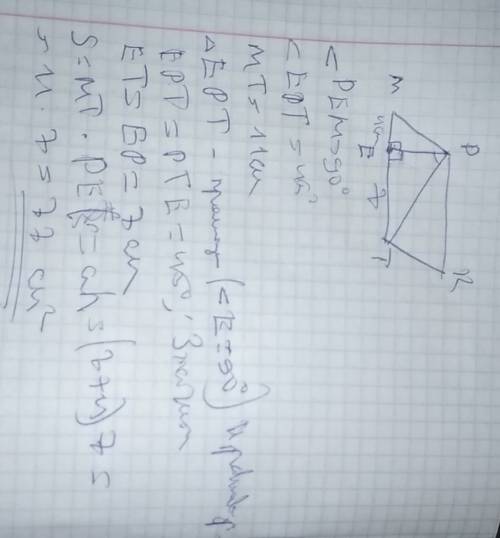 M
P
4см
E
7
T
K
<PEM=90°
<EPT=45°
MT=11см
△EPT - прямоуг (<E=90°) и равнобедр
EPT=PTE=45°; Значит
ET=EP=7 см
S=MT·PE=ah=(7+4)·7=
=11·7=77 см²